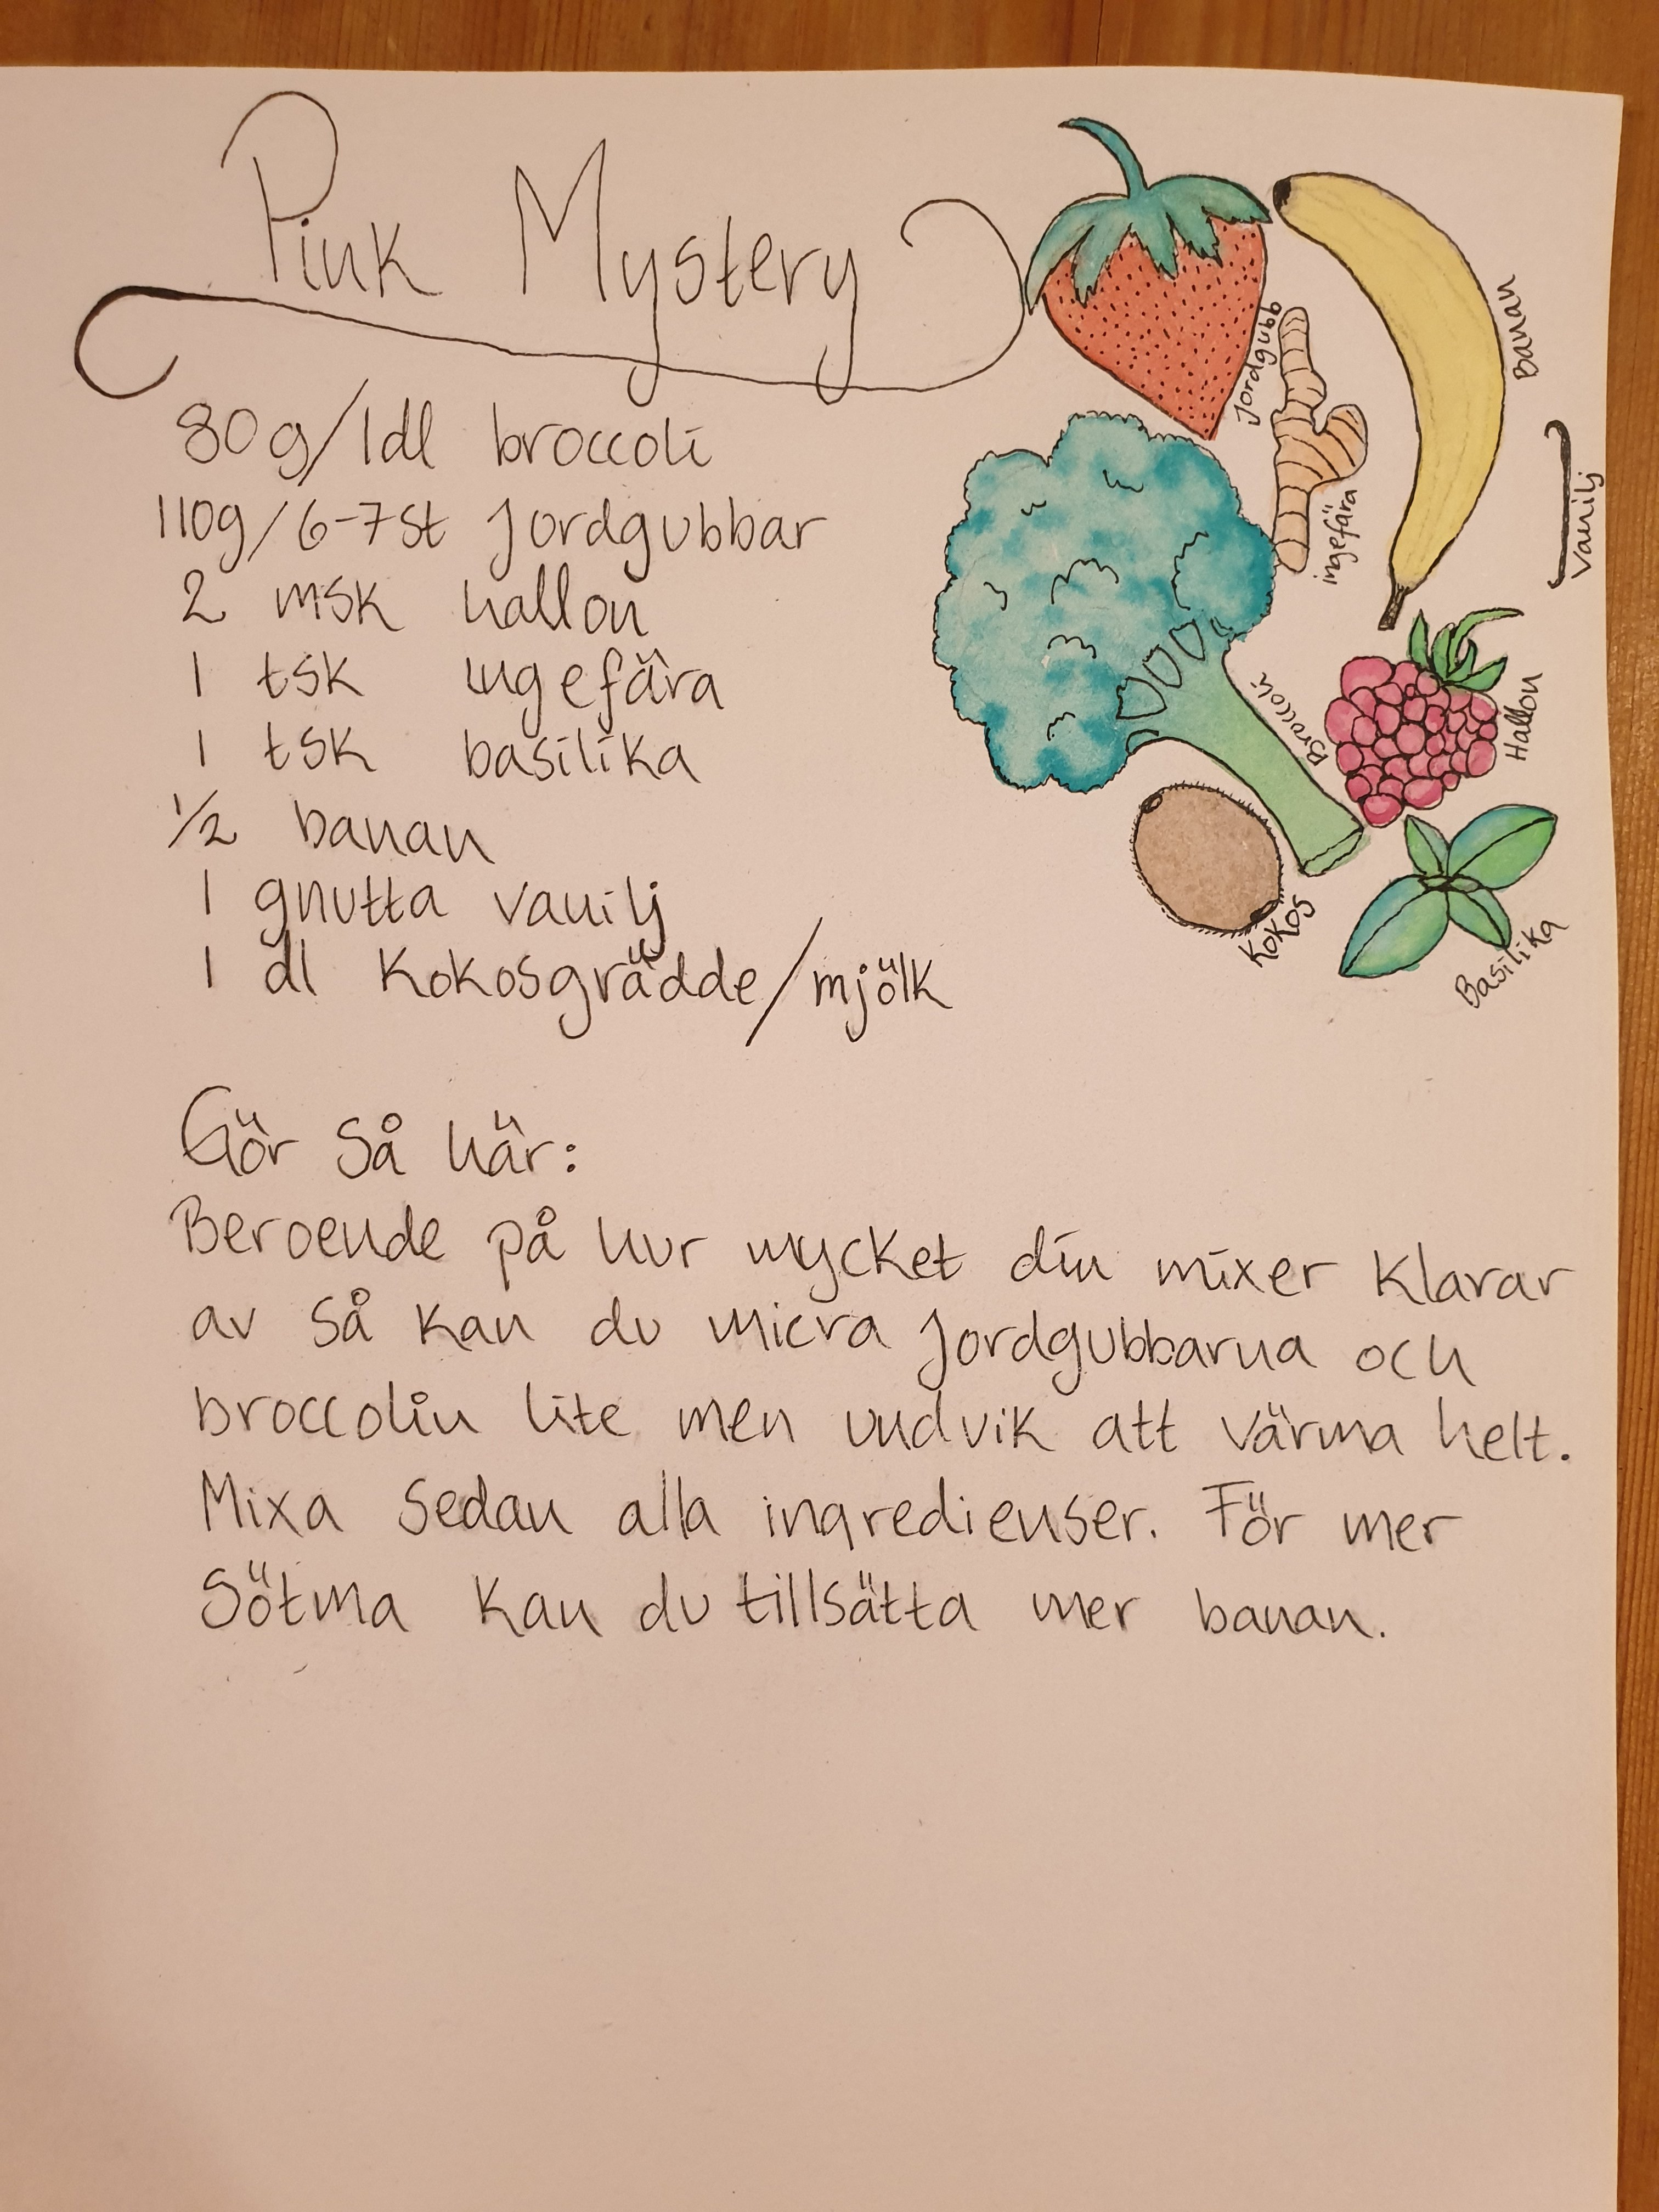 Pink Mystery
80g/1dl broccoli
110g/6-7st Jordgubbar
2 msk hallon
1 tsk ingefära
1 tsk basilika
1/2 banan
1 gnutta vanilj
1 dl Kokosgrädde/mjölk
Jordgubb
ingefära
Banan
vanilj
Broccoli
Hallon
Kokos
Basilika
Gör så här:
Beroende på hur mycket din mixer klarar
av så kan du micra Jordgubbarna och
broccolin lite men undvik att värma helt.
Mixa sedan alla ingredienser. För mer
Sötma kan du tillsätta mer banan.